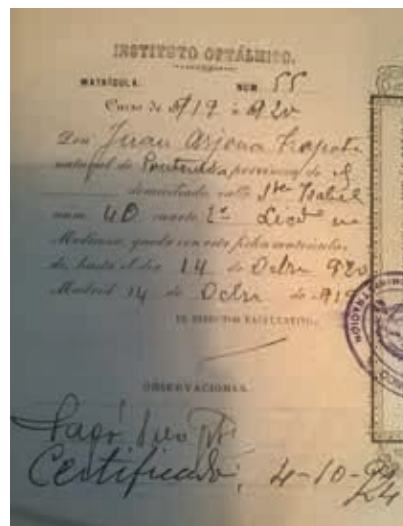 INSTITUTO OFTÁLMICO.
MATRÍCULA. NUM 55
Curso de 919 á 920
Don Juan Arjona Trapote
natural de provincia de
domiciliado calle Sta Isabel
num 40 cuarto 2º en
Medicina, queda con esta fecha matricula-
do, hasta el dia 14 de Octbre 920
Madrid 14 de Octbre de 919
EL DIRECTOR FACULTATIVO,
OBSERVACIONES.
Pagó
Certificado, 4-10-